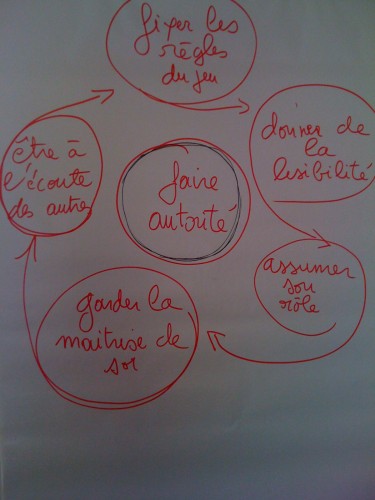 fixer les
règles
du jeu
donner de
la
lisibilité
assumer
son
rôle
garder la
maitrise de
soi
être à
l'écoute
des autres
faire
autorité